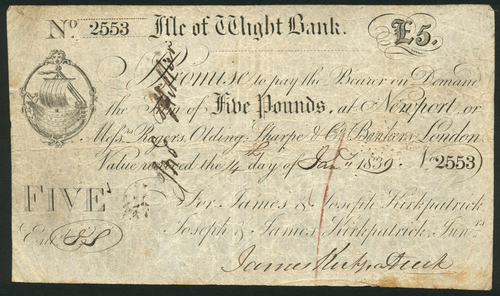 No. 2553 Isle of Wight Bank. £5.
I Promise to pay the Bearer on Demand
the Sum of Five Pounds, at Newport, or
Messrs. Rogers, Olding, Sharpe & Co. Bankers, London
Value received the 4th day of Jany. 1839 No 2553
FIVE For James & Joseph Kirkpatrick
Joseph & James Kirkpatrick, Junrs.
Entd.
James Kirkpatrick